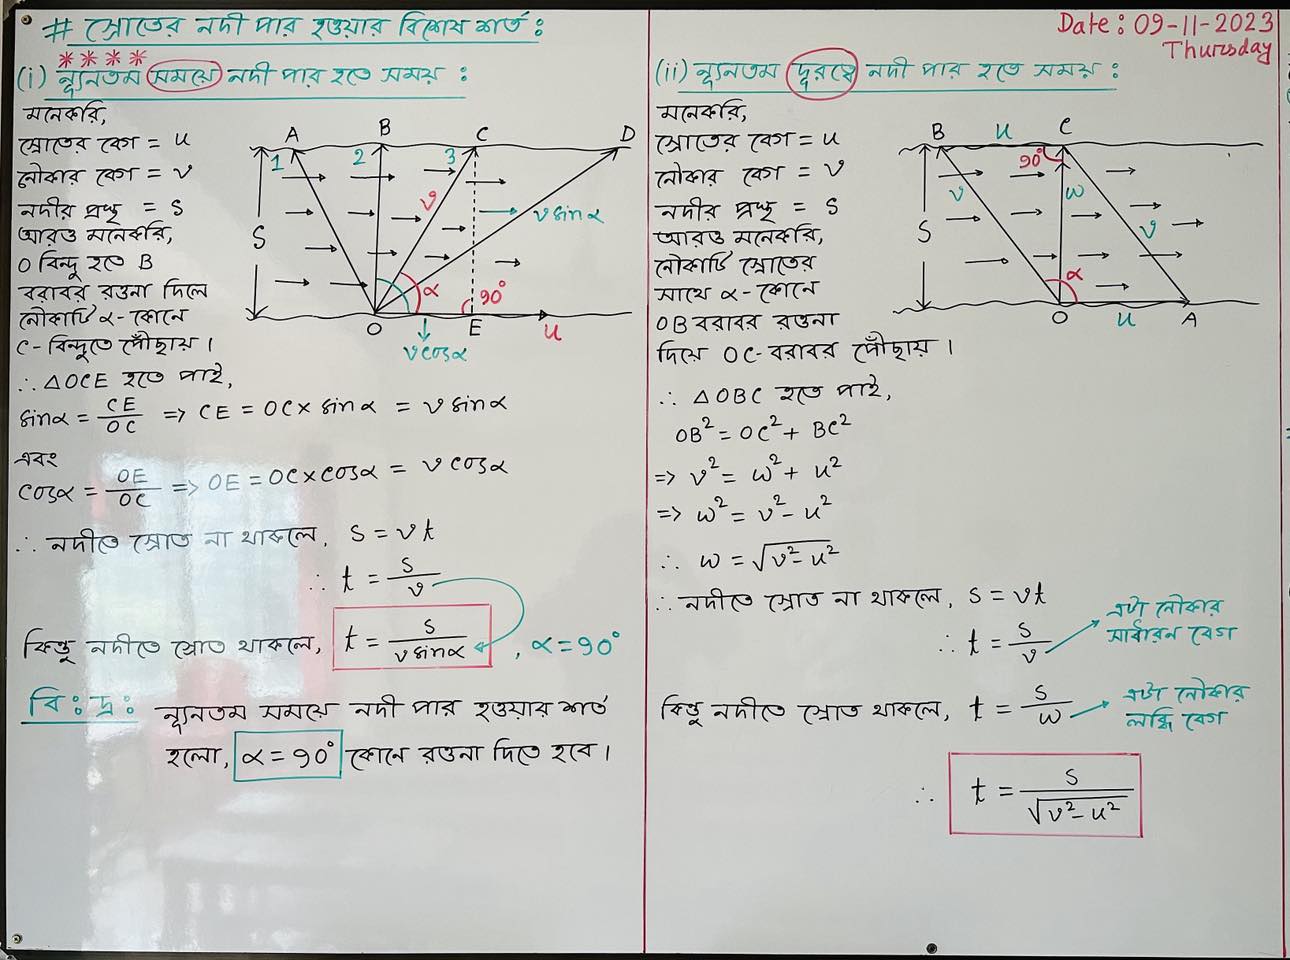 # স্রোতের নদী পার হওয়ার বিশেষ শর্ত :
Date : 09-11-2023
Thursday
(i) ন্যূনতম সময়ে নদী পার হতে সময় :
মনেকরি,
স্রোতের বেগ = u
নৌকার বেগ = v
নদীর প্রস্থ = s
আরও মনেকরি,
O বিন্দু হতে B
বরাবর রওনা দিলে
নৌকাটি α- কোনে
C- বিন্দুতে পৌঁছায়।
A B C D
1 2 3
S
v
v sinα
α
90°
O E u
v cosα
∴ △OCE হতে পাই,
sinα = CE/OC => CE = OC× sinα = v sinα
এবং
cosα = OE/OC => OE = OC×cosα = v cosα
∴ নদীতে স্রোত না থাকলে, s = vt
∴ t = s/v
কিন্তু নদীতে স্রোত থাকলে, t = s/v sinα , α = 90°
বি : দ্র : ন্যূনতম সময়ে নদী পার হওয়ার শর্ত
হলো, α = 90° কোনে রওনা দিতে হবে।
(ii) ন্যূনতম দূরত্বে নদী পার হতে সময় :
মনেকরি,
স্রোতের বেগ = u
নৌকার বেগ = v
নদীর প্রস্থ = s
আরও মনেকরি,
নৌকাটি স্রোতের
সাথে α- কোনে
OB বরাবর রওনা
দিয়ে OC- বরাবর পৌঁছায়।
B u C
90°
v w
S v
α
O u A
∴ △OBC হতে পাই,
OB² = OC² + BC²
=> v² = w² + u²
=> w² = v² - u²
∴ w = √v² - u²
∴ নদীতে স্রোত না থাকলে, s = vt
∴ t = s/v
এটা নৌকার
সার্ধারন বেগ
কিন্তু নদীতে স্রোত থাকলে, t = s/w
এটা নৌকার
লব্ধি বেগ
∴ t = s/√v² - u²